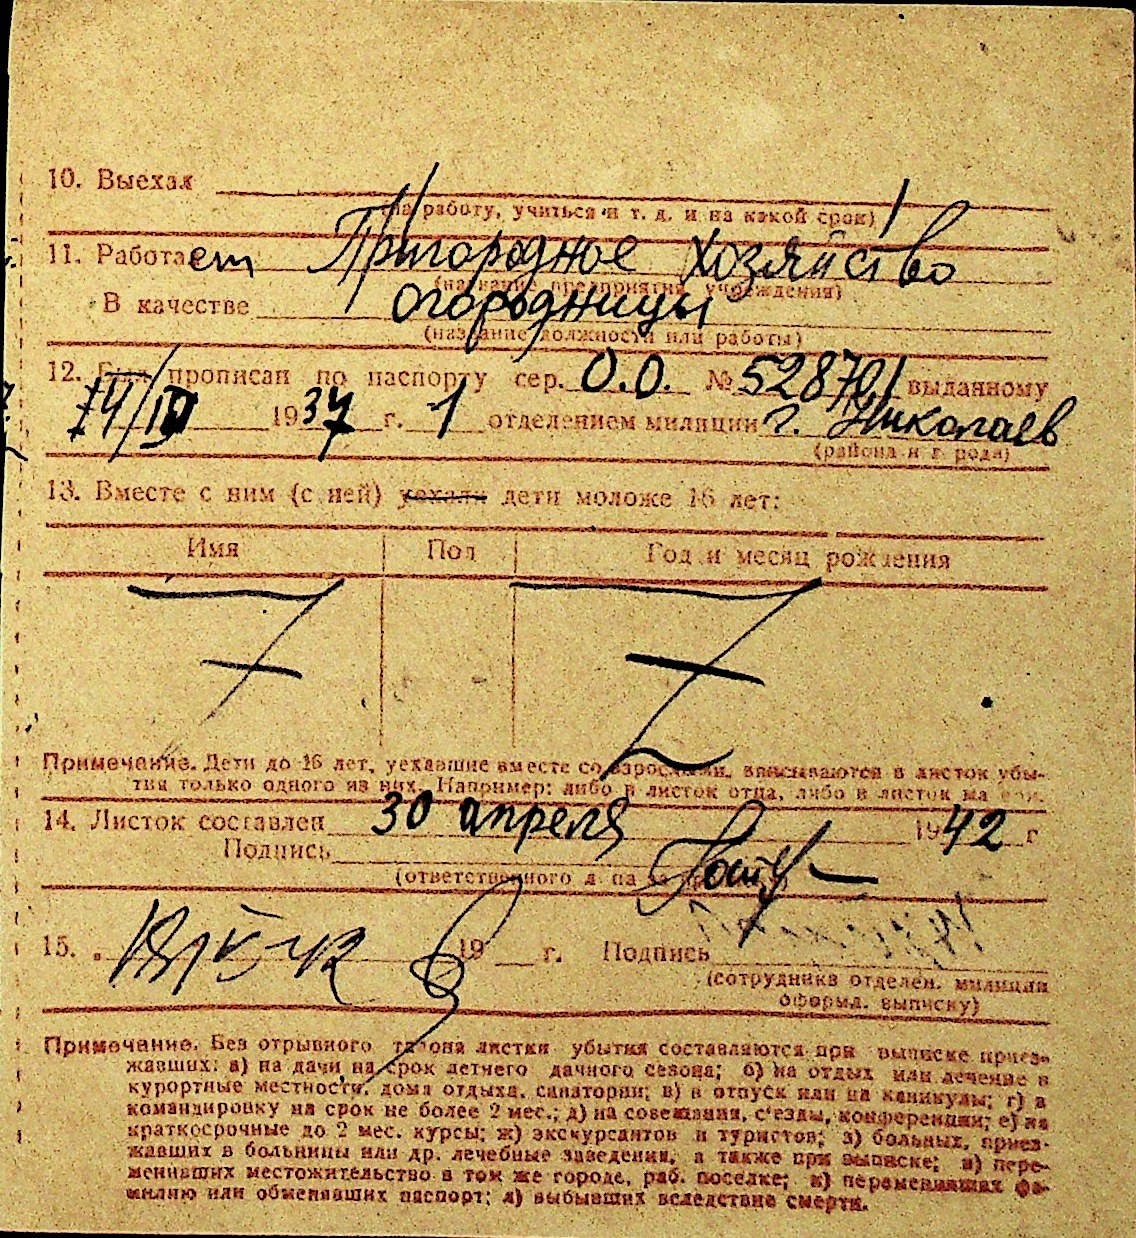 10. Выехал
(на работу, учиться и т. д. и на какой срок)
11. Работает Пригородное хозяйство
(название предприятия, учреждения)
В качестве огородницы
(название должности или работы)
12. Был прописан по паспорту сер. О.О. № выданному
14/IV 1937 г. 1 отделением милиции г. Николаев
(района и города)
13. Вместе с ним (с ней) уехали дети моложе 16 лет:
Имя Пол Год и месяц рождения
Примечание. Дети до 16 лет, уехавшие вместе со взрослыми, вписываются в листок убы-
тия только одного из них. Например: либо в листок отца, либо в листок матери.
14. Листок составлен 30 апреля 1942 г
Подпись
(ответственного л па за прописку)
15. 19 г. Подпись
(сотрудника отделен. милиции
оформл. выписку)
Примечание. Без отрывного талона листки убытия составляются при выписке приез-
жавших: а) на дачи на срок летнего дачного сезона; б) на отдых или лечение в
курортные местности, дома отдыха, санатории; в) в отпуск или на каникулы; г) в
командировку на срок не более 2 мес.; д) на совещания, с'езды, конференции; е) на
краткосрочные до 2 мес. курсы; ж) экскурсантов и туристов; з) больных, приез-
жавших в больницы или др. лечебные заведения, а также при выписке; и) пере-
менивших местожительство в том же городе, раб. поселке; к) переменивших фа-
милию или обменявших паспорт; л) выбывших вследствие смерти.